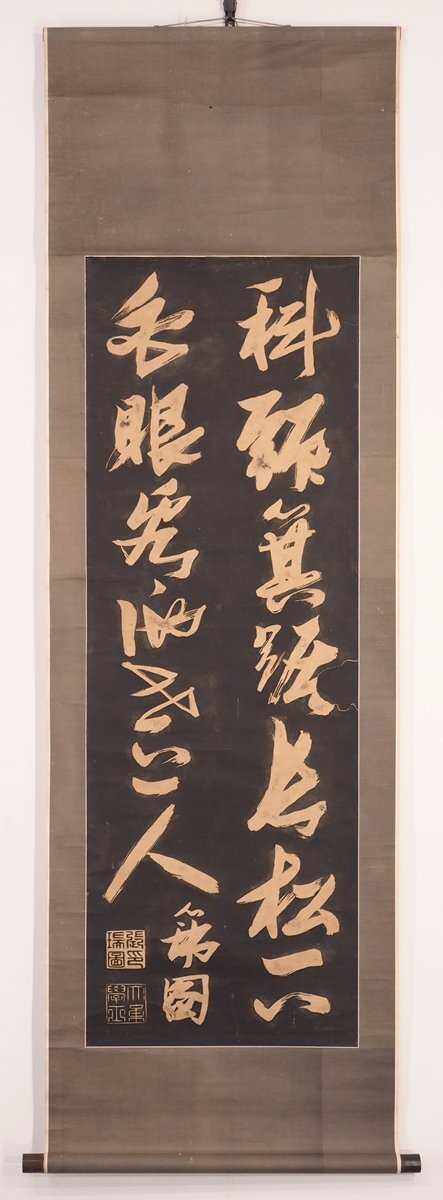 科頭箕踞長松下
白眼看他世上人
瑞圖
張瑞圖印